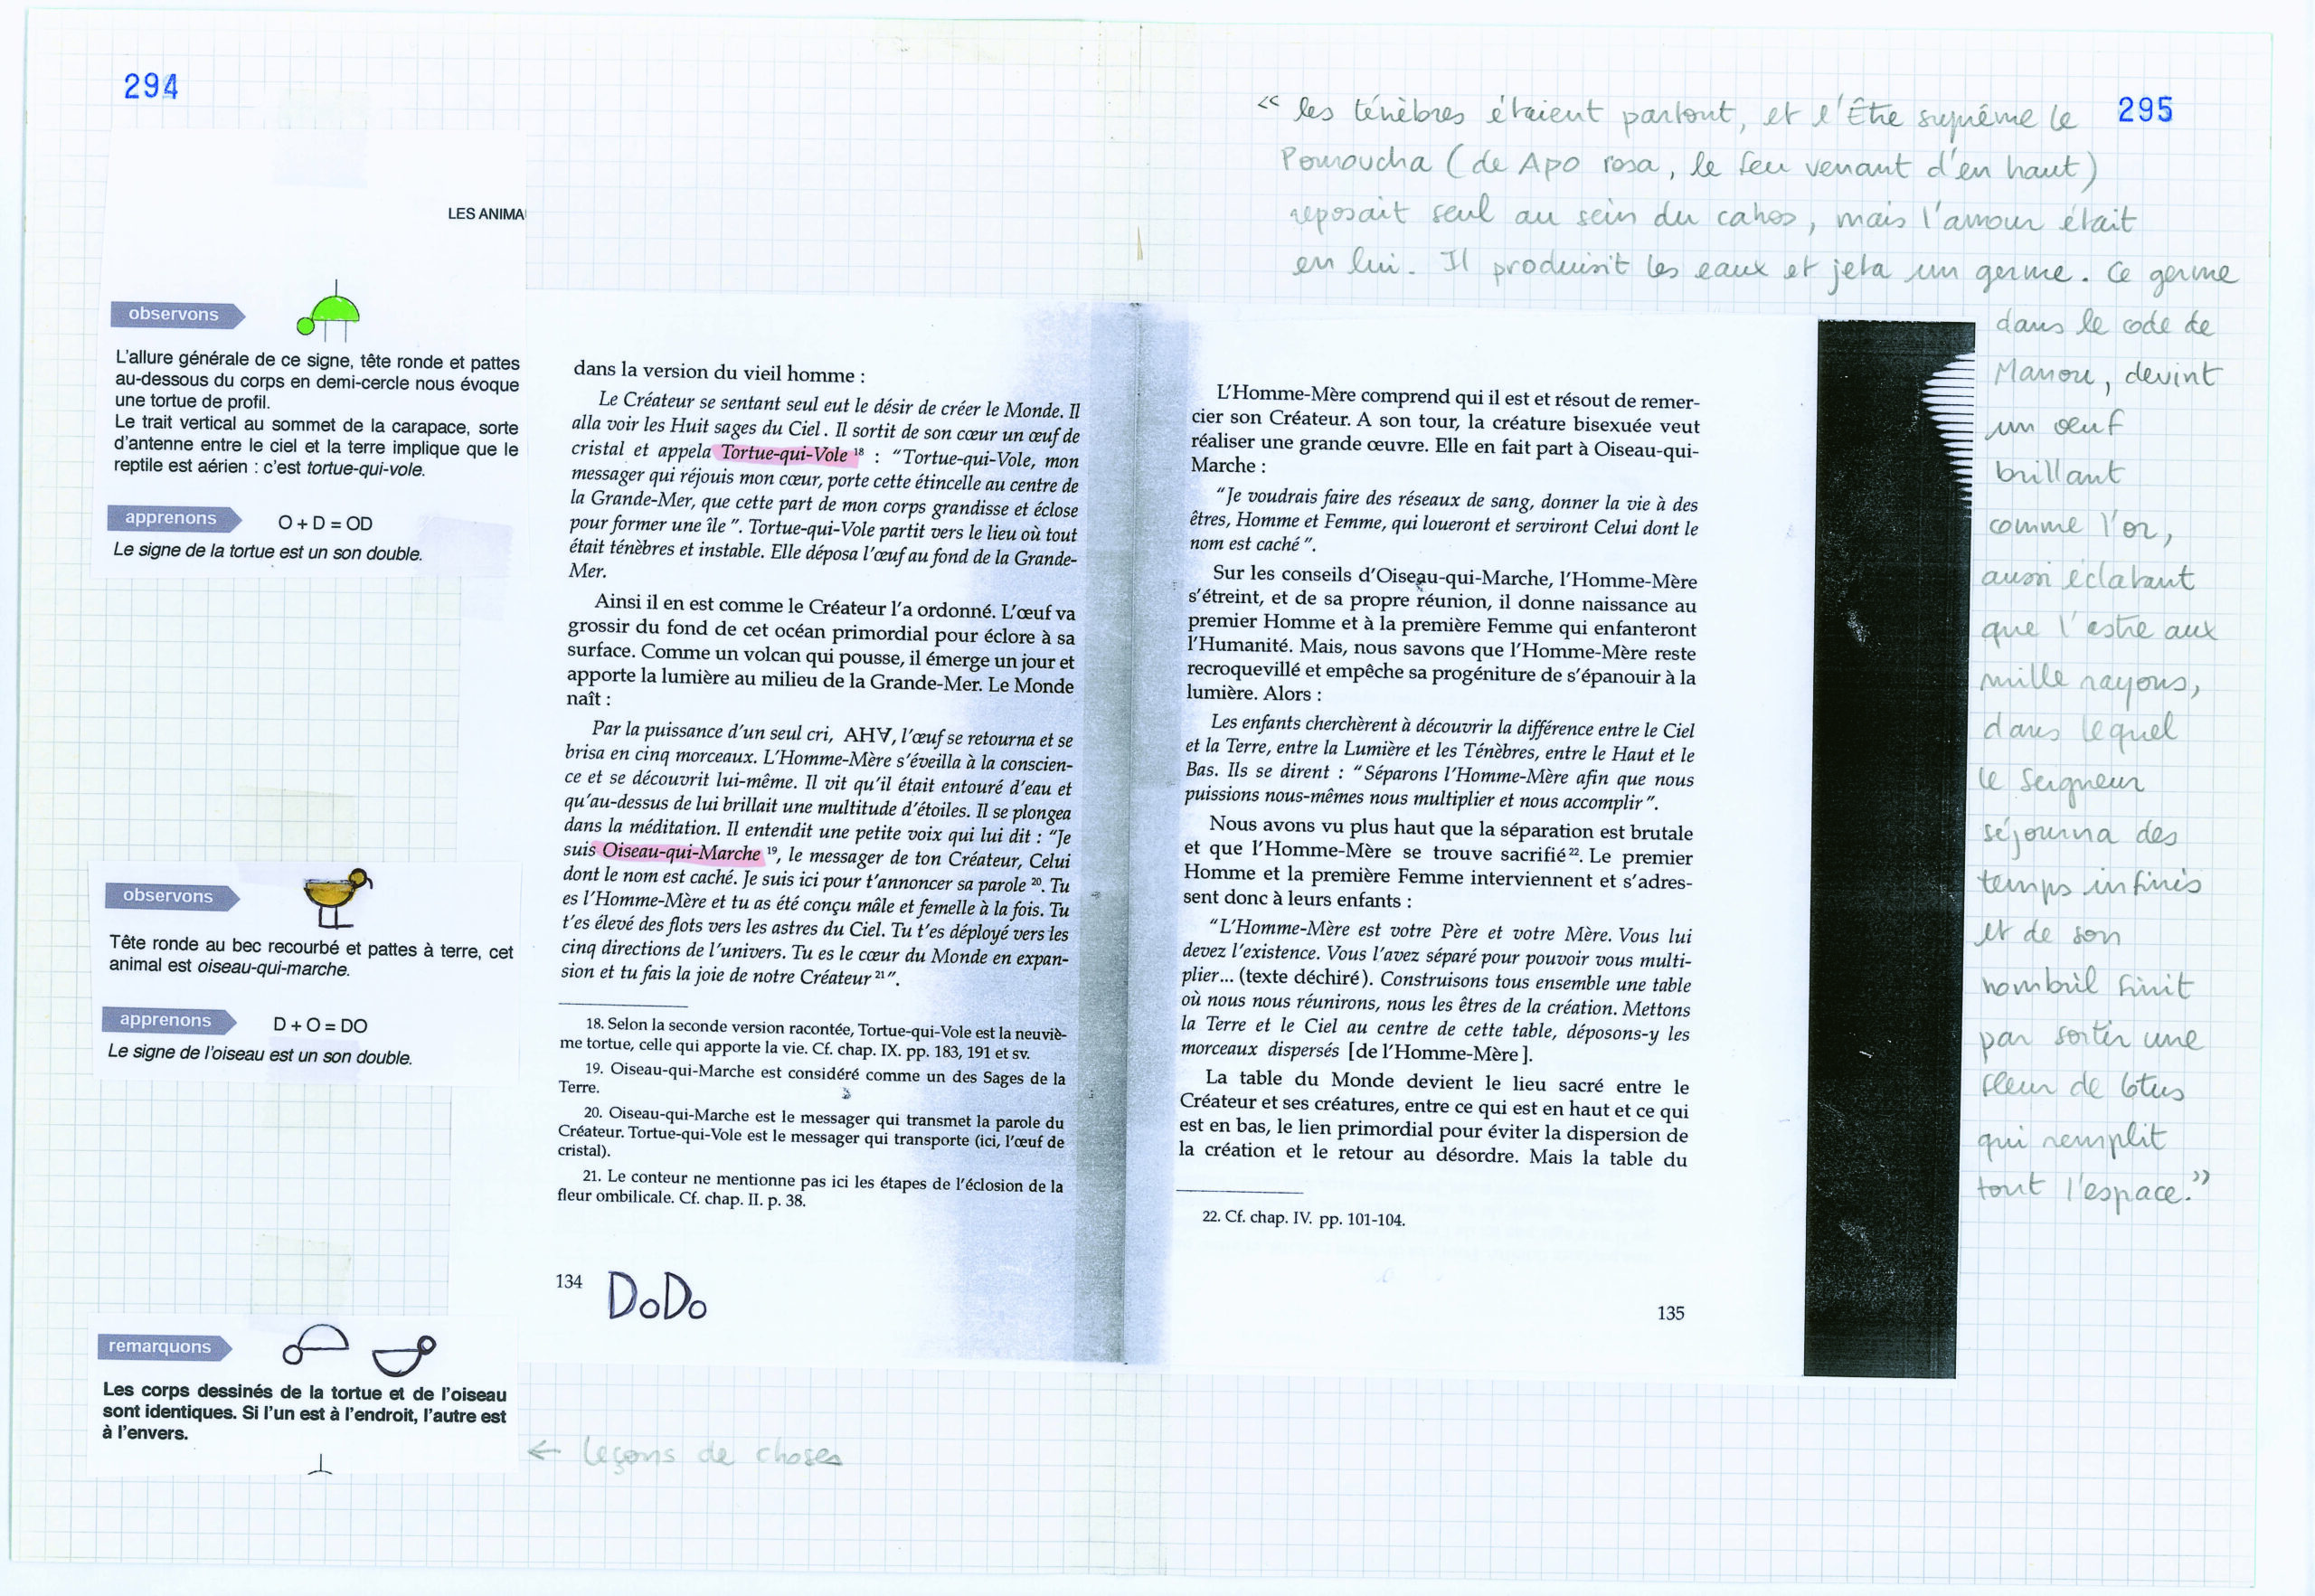 294
LES ANIMA
observons
L'allure générale de ce signe, tête ronde et pattes
au-dessous du corps en demi-cercle nous évoque
une tortue de profil.
Le trait vertical au sommet de la carapace, sorte
d'antenne entre le ciel et la terre implique que le
reptile est aérien : c'est tortue-qui-vole.
apprenons
O + D = OD
Le signe de la tortue est un son double.
observons
Tête ronde au bec recourbé et pattes à terre, cet
animal est oiseau-qui-marche.
apprenons
D + O = DO
Le signe de l'oiseau est un son double.
remarquons
Les corps dessinés de la tortue et de l'oiseau
sont identiques. Si l'un est à l'endroit, l'autre est
à l'envers.
← leçons de choses
dans la version du vieil homme :
Le Créateur se sentant seul eut le désir de créer le Monde. Il
alla voir les Huit sages du Ciel. Il sortit de son cœur un œuf de
cristal et appela Tortue-qui-Vole 18 : "Tortue-qui-Vole, mon
messager qui réjouis mon cœur, porte cette étincelle au centre de
la Grande-Mer, que cette part de mon corps grandisse et éclose
pour former une île". Tortue-qui-Vole partit vers le lieu où tout
était ténèbres et instable. Elle déposa l'œuf au fond de la Grande-
Mer.
Ainsi il en est comme le Créateur l'a ordonné. L'œuf va
grossir du fond de cet océan primordial pour éclore à sa
surface. Comme un volcan qui pousse, il émerge un jour et
apporte la lumière au milieu de la Grande-Mer. Le Monde
naît :
Par la puissance d'un seul cri, AH∀, l'œuf se retourna et se
brisa en cinq morceaux. L'Homme-Mère s'éveilla à la conscien-
ce et se découvrit lui-même. Il vit qu'il était entouré d'eau et
qu'au-dessus de lui brillait une multitude d'étoiles. Il se plongea
dans la méditation. Il entendit une petite voix qui lui dit : "Je
suis Oiseau-qui-Marche 19, le messager de ton Créateur, Celui
dont le nom est caché. Je suis ici pour t'annoncer sa parole 20. Tu
es l'Homme-Mère et tu as été conçu mâle et femelle à la fois. Tu
t'es élevé des flots vers les astres du Ciel. Tu t'es déployé vers les
cinq directions de l'univers. Tu es le cœur du Monde en expan-
sion et tu fais la joie de notre Créateur 21".
18. Selon la seconde version racontée, Tortue-qui-Vole est la neuviè-
me tortue, celle qui apporte la vie. Cf. chap. IX. pp. 183, 191 et sv.
19. Oiseau-qui-Marche est considéré comme un des Sages de la
Terre.
20. Oiseau-qui-Marche est le messager qui transmet la parole du
Créateur. Tortue-qui-Vole est le messager qui transporte (ici, l'œuf de
cristal).
21. Le conteur ne mentionne pas ici les étapes de l'éclosion de la
fleur ombilicale. Cf. chap. II. p. 38.
134
DoDo
L'Homme-Mère comprend qui il est et résout de remer-
cier son Créateur. A son tour, la créature bisexuée veut
réaliser une grande œuvre. Elle en fait part à Oiseau-qui-
Marche :
"Je voudrais faire des réseaux de sang, donner la vie à des
êtres, Homme et Femme, qui loueront et serviront Celui dont le
nom est caché".
Sur les conseils d'Oiseau-qui-Marche, l'Homme-Mère
s'étreint, et de sa propre réunion, il donne naissance au
premier Homme et à la première Femme qui enfanteront
l'Humanité. Mais, nous savons que l'Homme-Mère reste
recroquevillé et empêche sa progéniture de s'épanouir à la
lumière. Alors :
Les enfants cherchèrent à découvrir la différence entre le Ciel
et la Terre, entre la Lumière et les Ténèbres, entre le Haut et le
Bas. Ils se dirent : "Séparons l'Homme-Mère afin que nous
puissions nous-mêmes nous multiplier et nous accomplir".
Nous avons vu plus haut que la séparation est brutale
et que l'Homme-Mère se trouve sacrifié 22. Le premier
Homme et la première Femme interviennent et s'adres-
sent donc à leurs enfants :
"L'Homme-Mère est votre Père et votre Mère. Vous lui
devez l'existence. Vous l'avez séparé pour pouvoir vous multi-
plier... (texte déchiré). Construisons tous ensemble une table
où nous nous réunirons, nous les êtres de la création. Mettons
la Terre et le Ciel au centre de cette table, déposons-y les
morceaux dispersés [de l'Homme-Mère].
La table du Monde devient le lieu sacré entre le
Créateur et ses créatures, entre ce qui est en haut et ce qui
est en bas, le lien primordial pour éviter la dispersion de
la création et le retour au désordre. Mais la table du
22. Cf. chap. IV. pp. 101-104.
135
295
« les ténèbres étaient partout, et l'Être suprême le
Pouroucha (de Apo rosa, le feu venant d'en haut)
reposait seul au sein du cahos, mais l'amour était
en lui. Il produisit les eaux et jeta un germe. Ce germe
dans le code de
Manou, devint
un œuf
brillant
comme l'or,
aussi éclatant
que l'astre aux
mille rayons,
dans lequel
le Seigneur
séjourna des
temps infinis
et de son
nombril finit
par sortir une
fleur de lotus
qui remplit
tout l'espace."